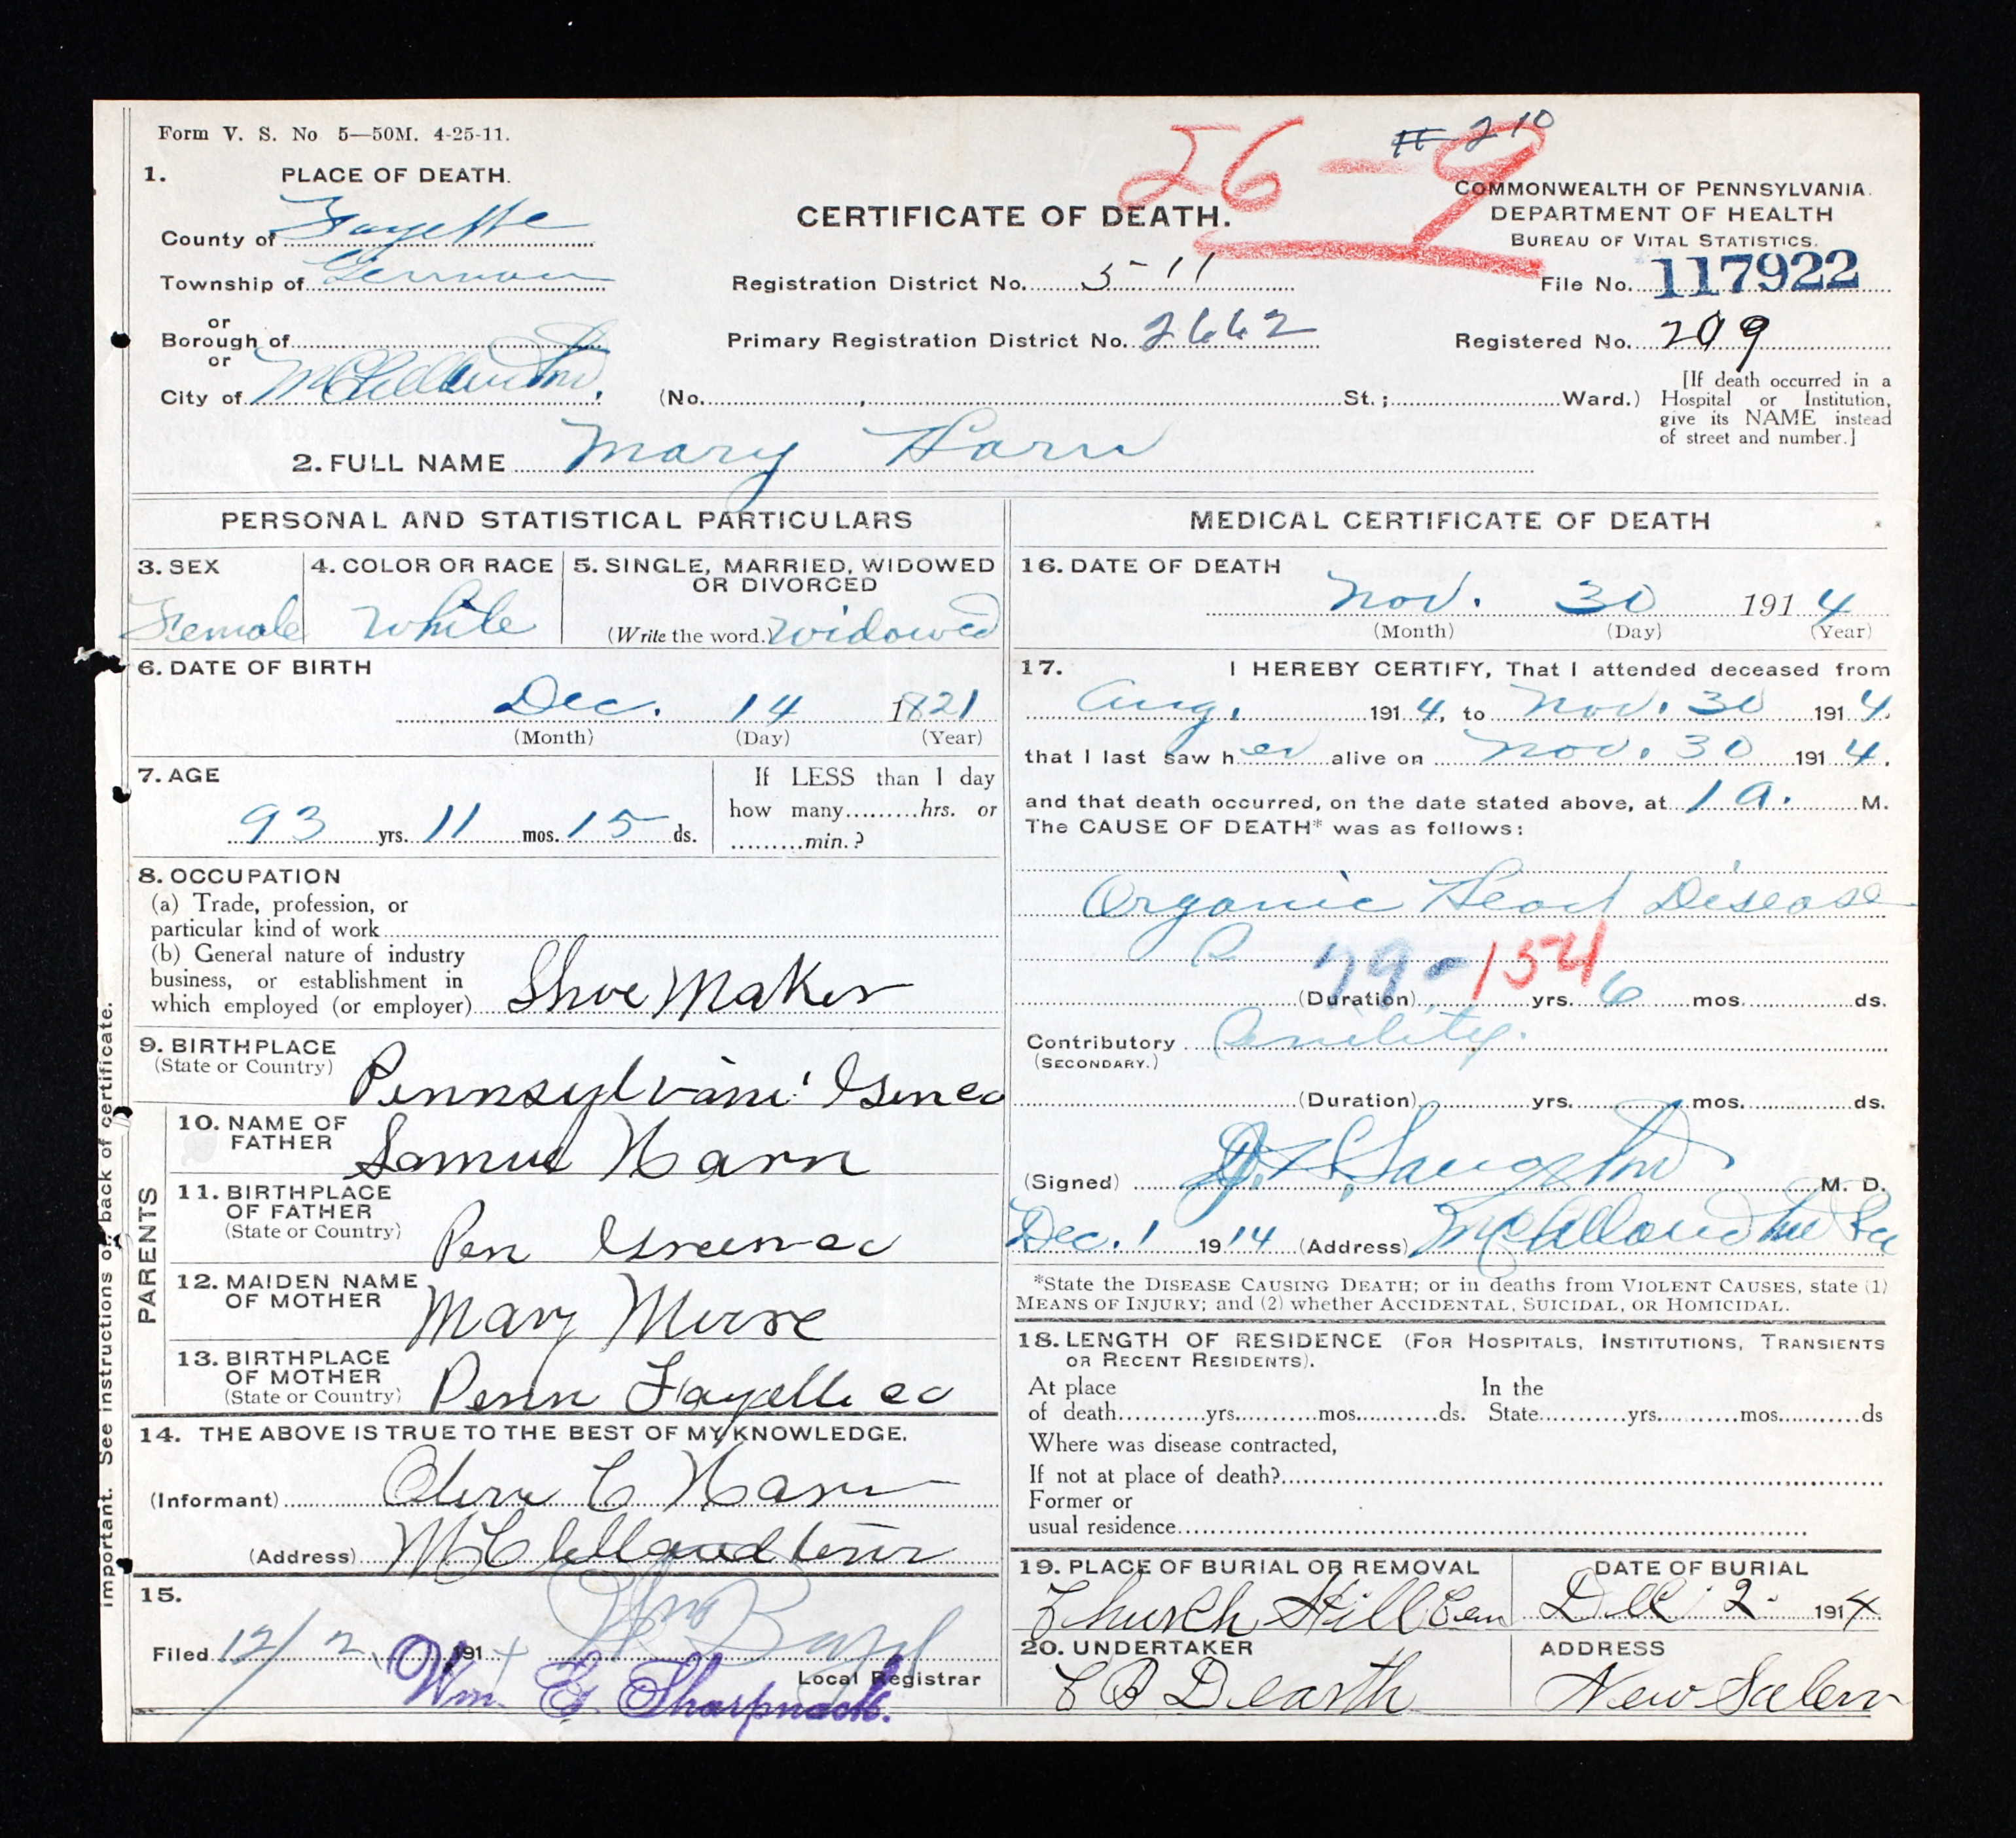 Form V. S. No 5—50M. 4-25-11.
# 210
26-9
1. PLACE OF DEATH.
County of Fayette
Township of German
or
Borough of
or
City of
CERTIFICATE OF DEATH.
COMMONWEALTH OF PENNSYLVANIA.
DEPARTMENT OF HEALTH
BUREAU OF VITAL STATISTICS.
Registration District No. 511
File No. 117922
Primary Registration District No. 2662
Registered No. 209
(No. , St. ; Ward.)
[If death occurred in a
Hospital or Institution,
give its NAME instead
of street and number.]
2. FULL NAME Mary Harn
PERSONAL AND STATISTICAL PARTICULARS
3. SEX
Female
4. COLOR OR RACE
White
5. SINGLE, MARRIED, WIDOWED
OR DIVORCED
(Write the word.) Widowed
6. DATE OF BIRTH
Dec. 14 1821
(Month) (Day) (Year)
7. AGE
93 yrs. 11 mos. 15 ds.
If LESS than 1 day
how many hrs. or
min.?
8. OCCUPATION
(a) Trade, profession, or
particular kind of work
(b) General nature of industry
business, or establishment in
which employed (or employer) Shoe Maker
9. BIRTHPLACE
(State or Country)
PARENTS
10. NAME OF
FATHER
Samuel Harn
11. BIRTHPLACE
OF FATHER
(State or Country)
Pen Green co
12. MAIDEN NAME
OF MOTHER
Mary
13. BIRTHPLACE
OF MOTHER
(State or Country)
Penn Fayette co
14. THE ABOVE IS TRUE TO THE BEST OF MY KNOWLEDGE.
(Informant) C Harn
(Address)
15.
Filed 12/2 1914
Local Registrar
Wm. G. Sharpnack.
MEDICAL CERTIFICATE OF DEATH
16. DATE OF DEATH
Nov. 30 1914
(Month) (Day) (Year)
17. I HEREBY CERTIFY, That I attended deceased from
Aug. 1914, to Nov. 30 1914.
that I last saw her alive on Nov. 30 1914.
and that death occurred, on the date stated above, at 1 a. M.
The CAUSE OF DEATH* was as follows:
Organic Heart Disease
79-154
(Duration) yrs. 6 mos. ds.
Contributory Senility.
(SECONDARY.)
(Duration) yrs. mos. ds.
(Signed) M. D.
Dec. 1 1914 (Address)
*State the DISEASE CAUSING DEATH; or in deaths from VIOLENT CAUSES, state (1)
MEANS OF INJURY; and (2) whether ACCIDENTAL, SUICIDAL, OR HOMICIDAL.
18. LENGTH OF RESIDENCE (FOR HOSPITALS, INSTITUTIONS, TRANSIENTS
OR RECENT RESIDENTS).
At place In the
of death yrs. mos. ds. State yrs. mos. ds
Where was disease contracted,
If not at place of death?
Former or
usual residence
19. PLACE OF BURIAL OR REMOVAL
Church Hill Cem
DATE OF BURIAL
Dec 2 1914
20. UNDERTAKER
C B Dearth
ADDRESS
New Salem
important. See instructions on back of certificate.